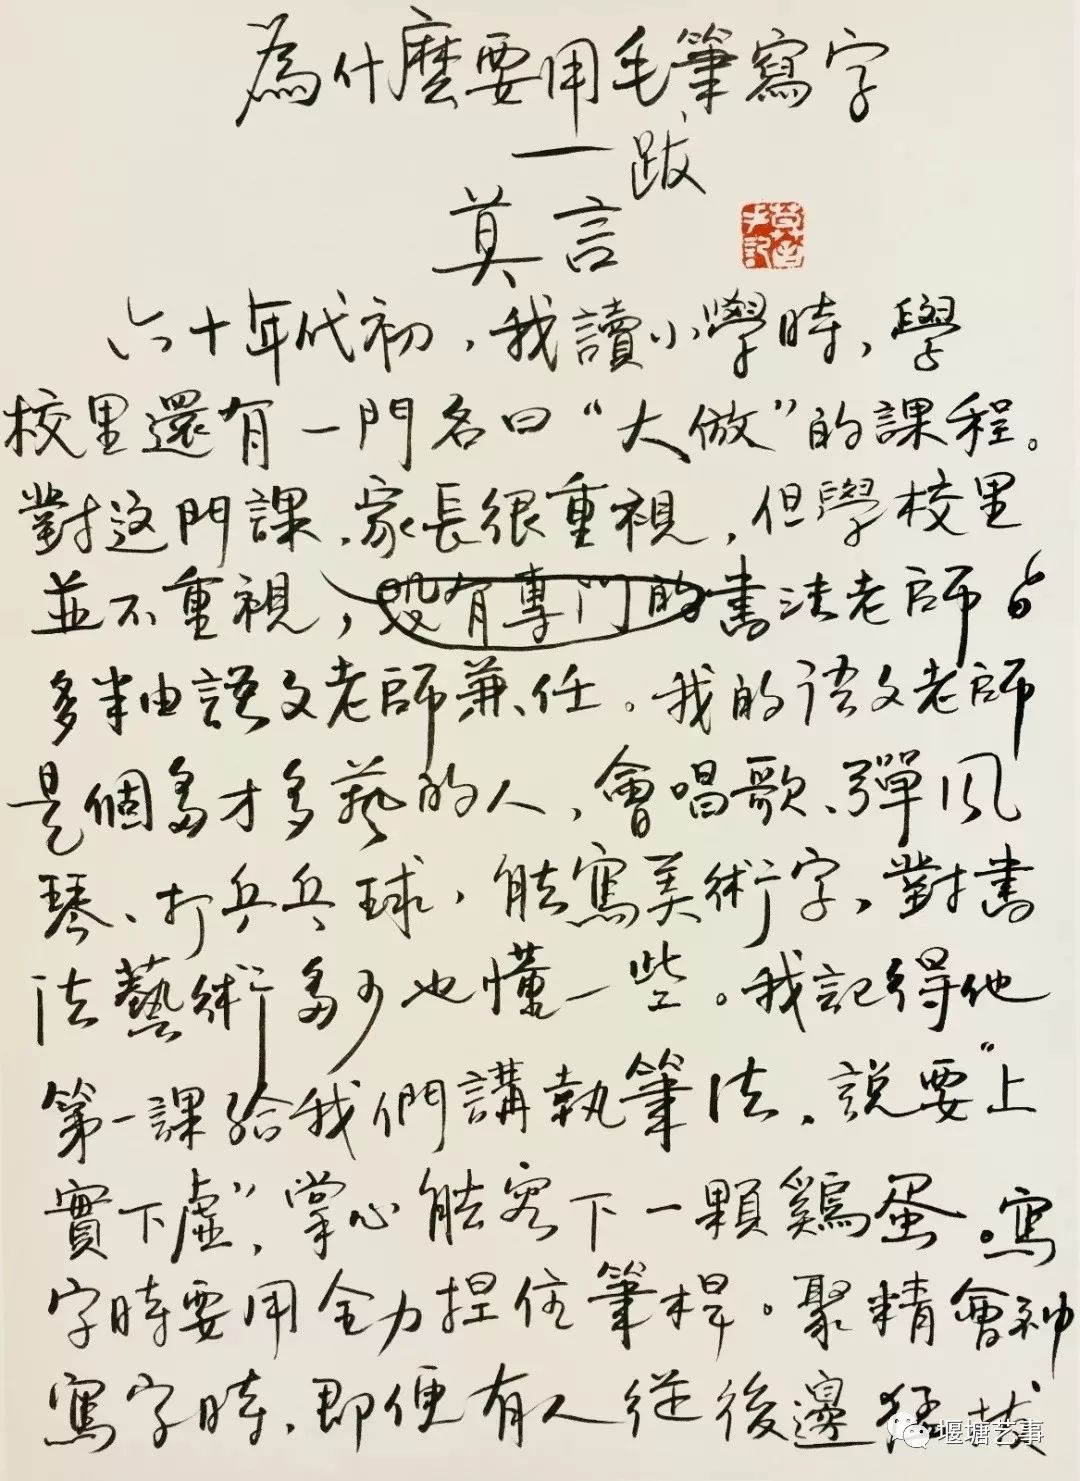 為什麼要用毛筆寫字
——跋
莫言
六十年代初，我讀小學時，學
校里還有一門名曰“大倣”的課程。
對这門課，家長很重視，但學校里
並不重視，没有專門的書法老師，
多半由語文老師兼任。我的语文老師
是個多才多藝的人，會唱歌、彈风
琴、打乒乓球，能寫美術字，對書
法藝術多少也懂一些。我記得他
第一課給我們講執筆法，説要“上
實下虛”，掌心能容下一顆鷄蛋。寫
字時要用全力捏住筆桿。聚精會神
寫字時，即便有人従後邊猛拔
堰塘艺事